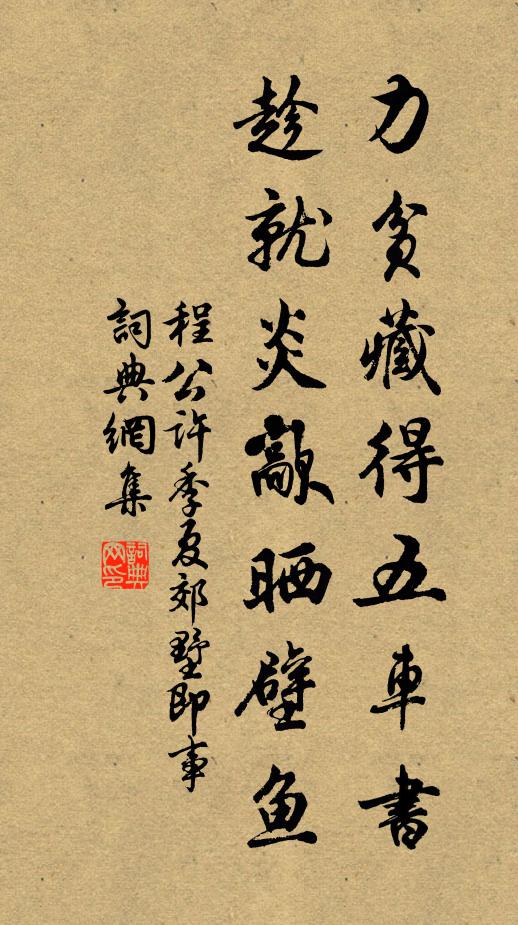 力贫藏得五車書
趁就炎歊晒壁魚
程公許季夏郊墅即事
詞典網集
詞典網印